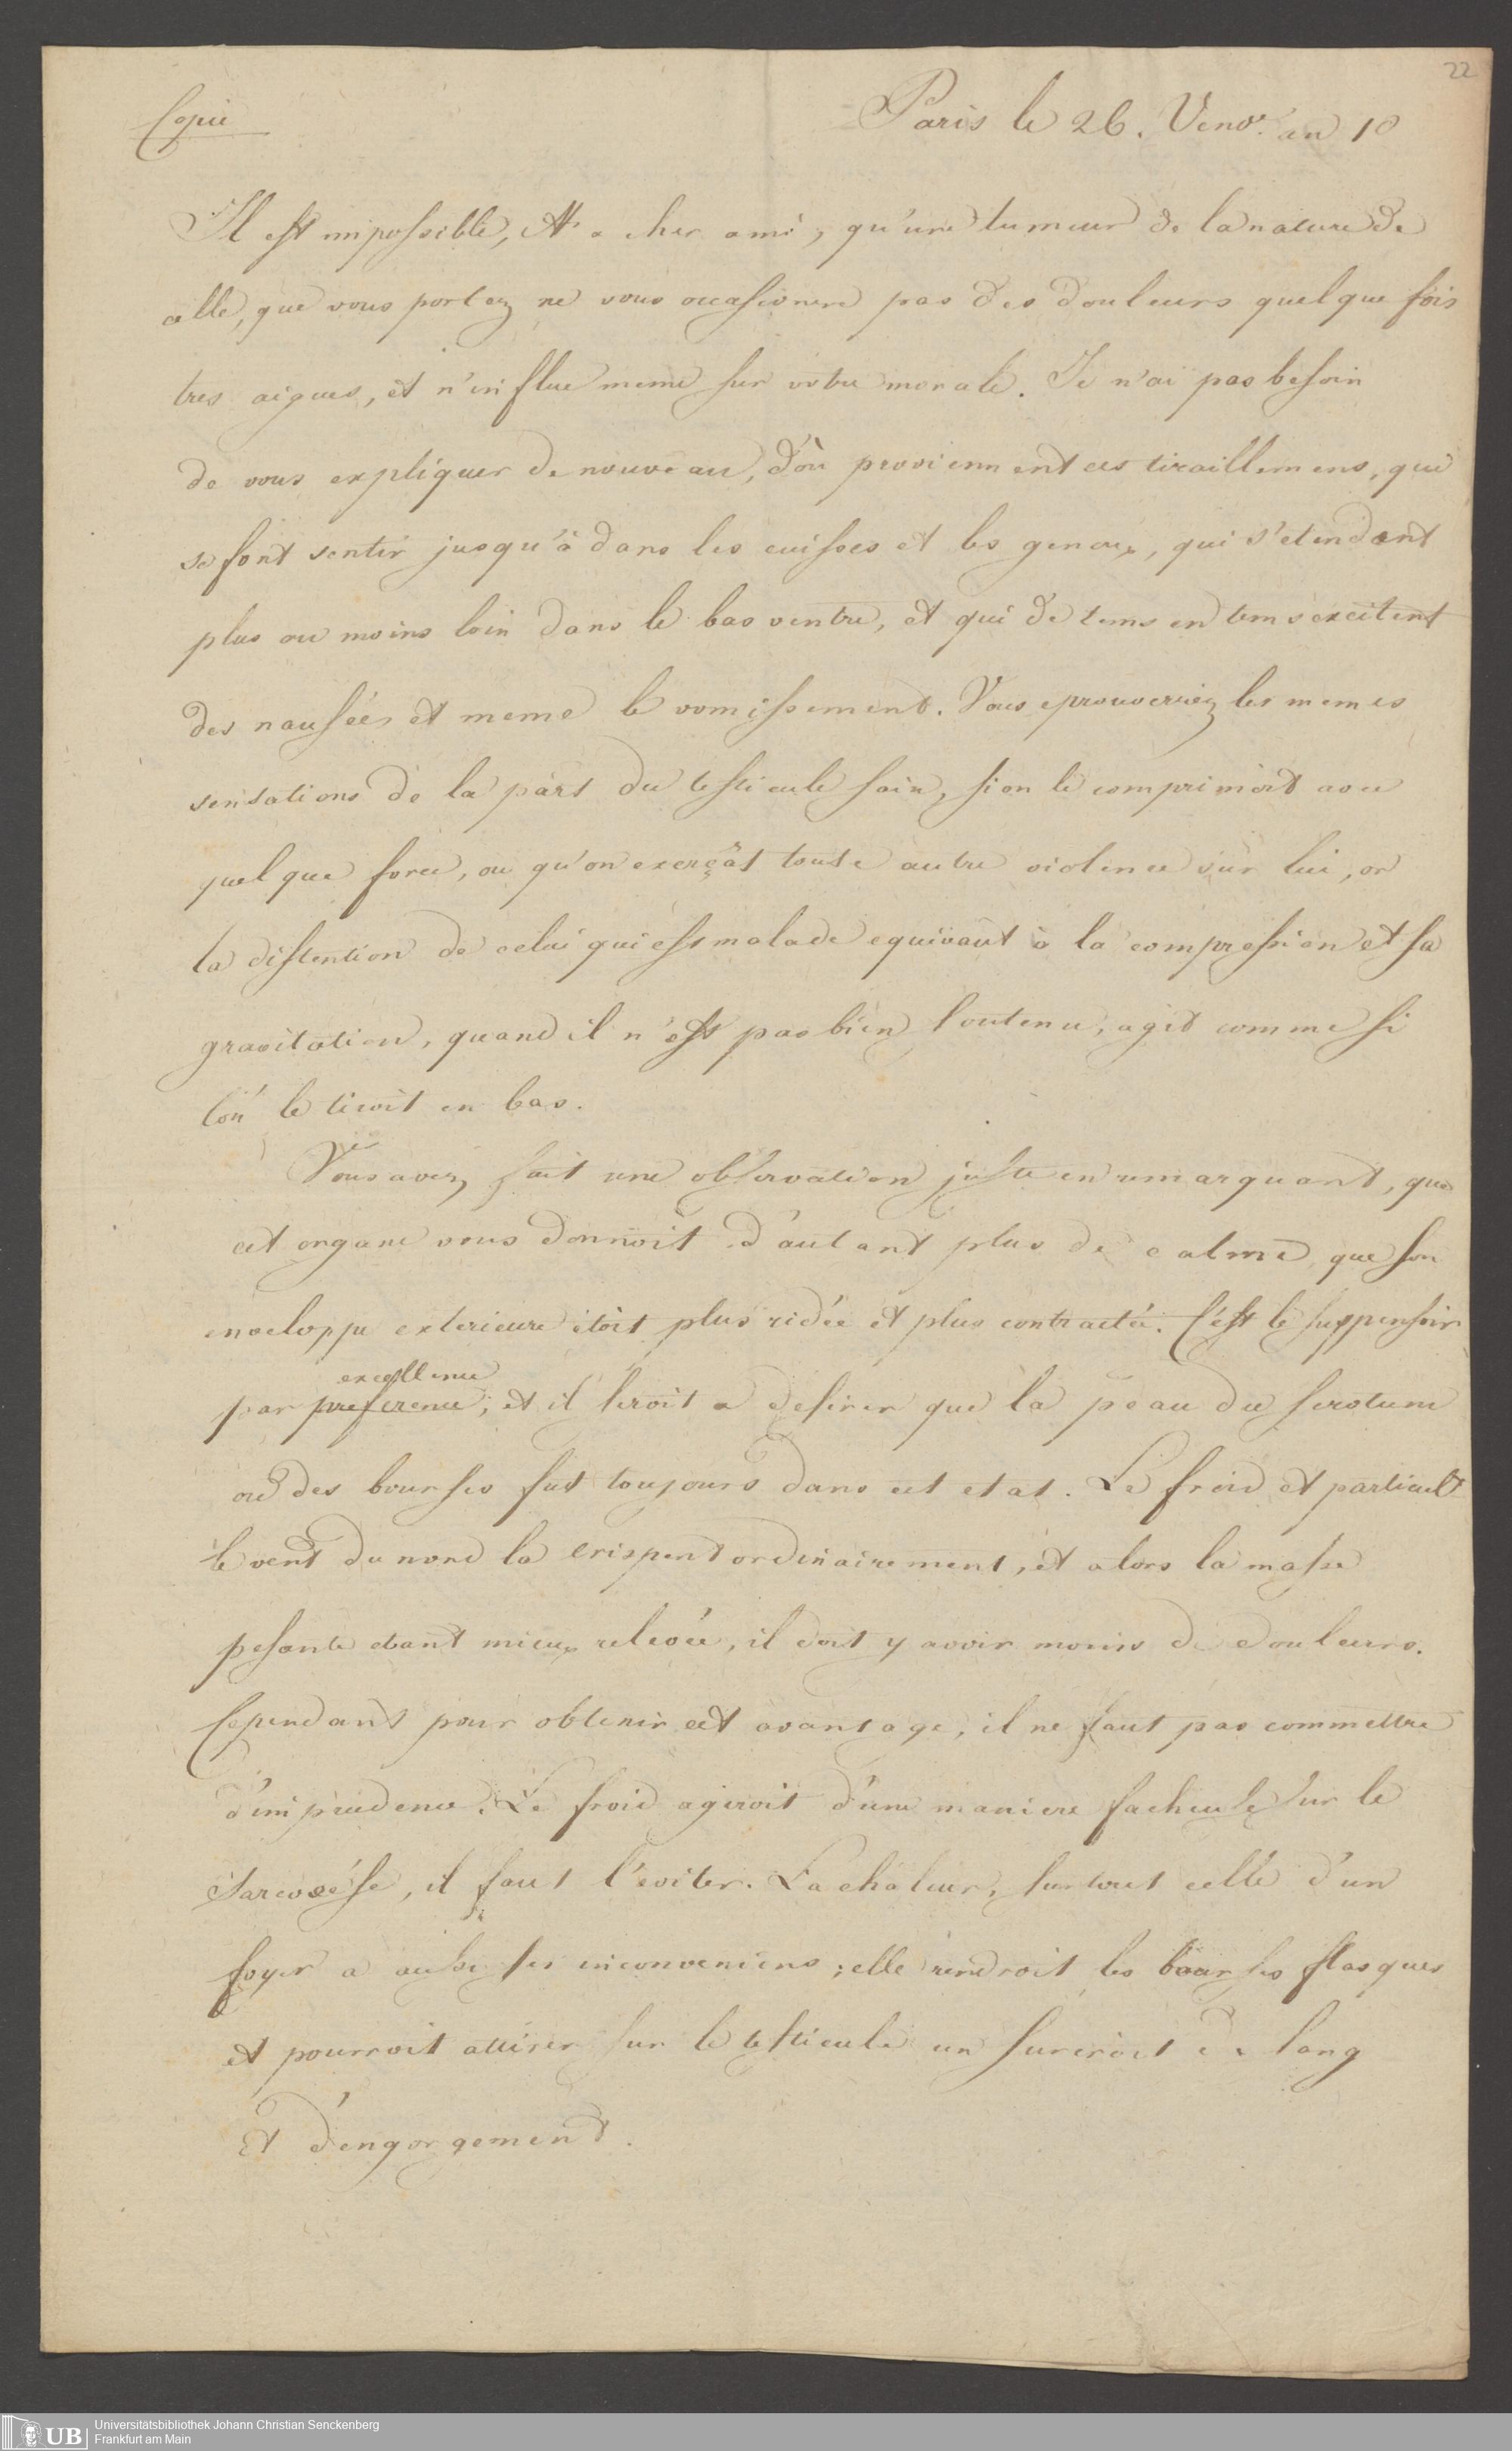 22
Copie
Paris le 26. Vend.r an 10
Il est impossible, M a cher ami, qu'une tumeur de la nature de
celle, que vous portez ne vous occasionne pas des douleurs quelque fois
tres aigues, et n'influe meme sur votre morale. Je n'ai pas besoin
de vous expliquer de nouveau, d'où proviennent ces tiraillemens, qui
se font sentir jusqu'à dans les cuisses et les genoux, qui s'etendent
plus ou moins loin dans le bas ventre, et qui de tems en tems excitent
des nausées et meme le vomissement. Vous eprouveriez les memes
sensations de la part du testicule sain, si on le comprimoit avec
quelque force, ou qu'on exerçât toute autre violence sur lui, or
la distention de celui qui est malade equivaut à la compression et sa
gravitation, quand il n'est pas bien soutenu, agit comme si
l'on le tiroit en bas.
Vous avez fait une observation juste en remarquant, que
cet organe vous donnoit d'autant plus de calme, que son
enveloppe exterieure étoit plus ridée et plus contractée. C'est le suspensoir
excellence
par preference; et il seroit a desirer que la peau du scrotum
ou des bourses fut toujours dans cet etat. Le froid et particult
le vent du nord la crispent ordinairement, et alors la masse
pesante etant mieux relevée, il doit y avoir moins de douleurs.
Cependant pour obtenir cet avantage, il ne faut pas commettre
d'imprudence. Le froid agiroit d'une maniere facheuse sur le
Sarcocèse, il faut l'eviter. La chaleur, surtout celle d'un
foyer a aussi ses inconveniens; elle rendroit les bourses flasques
et pourroit attirer sur le testicule un surcroit de sang
et d'engorgement.
UB
Universitätsbibliothek Johann Christian Senckenberg
Frankfurt am Main